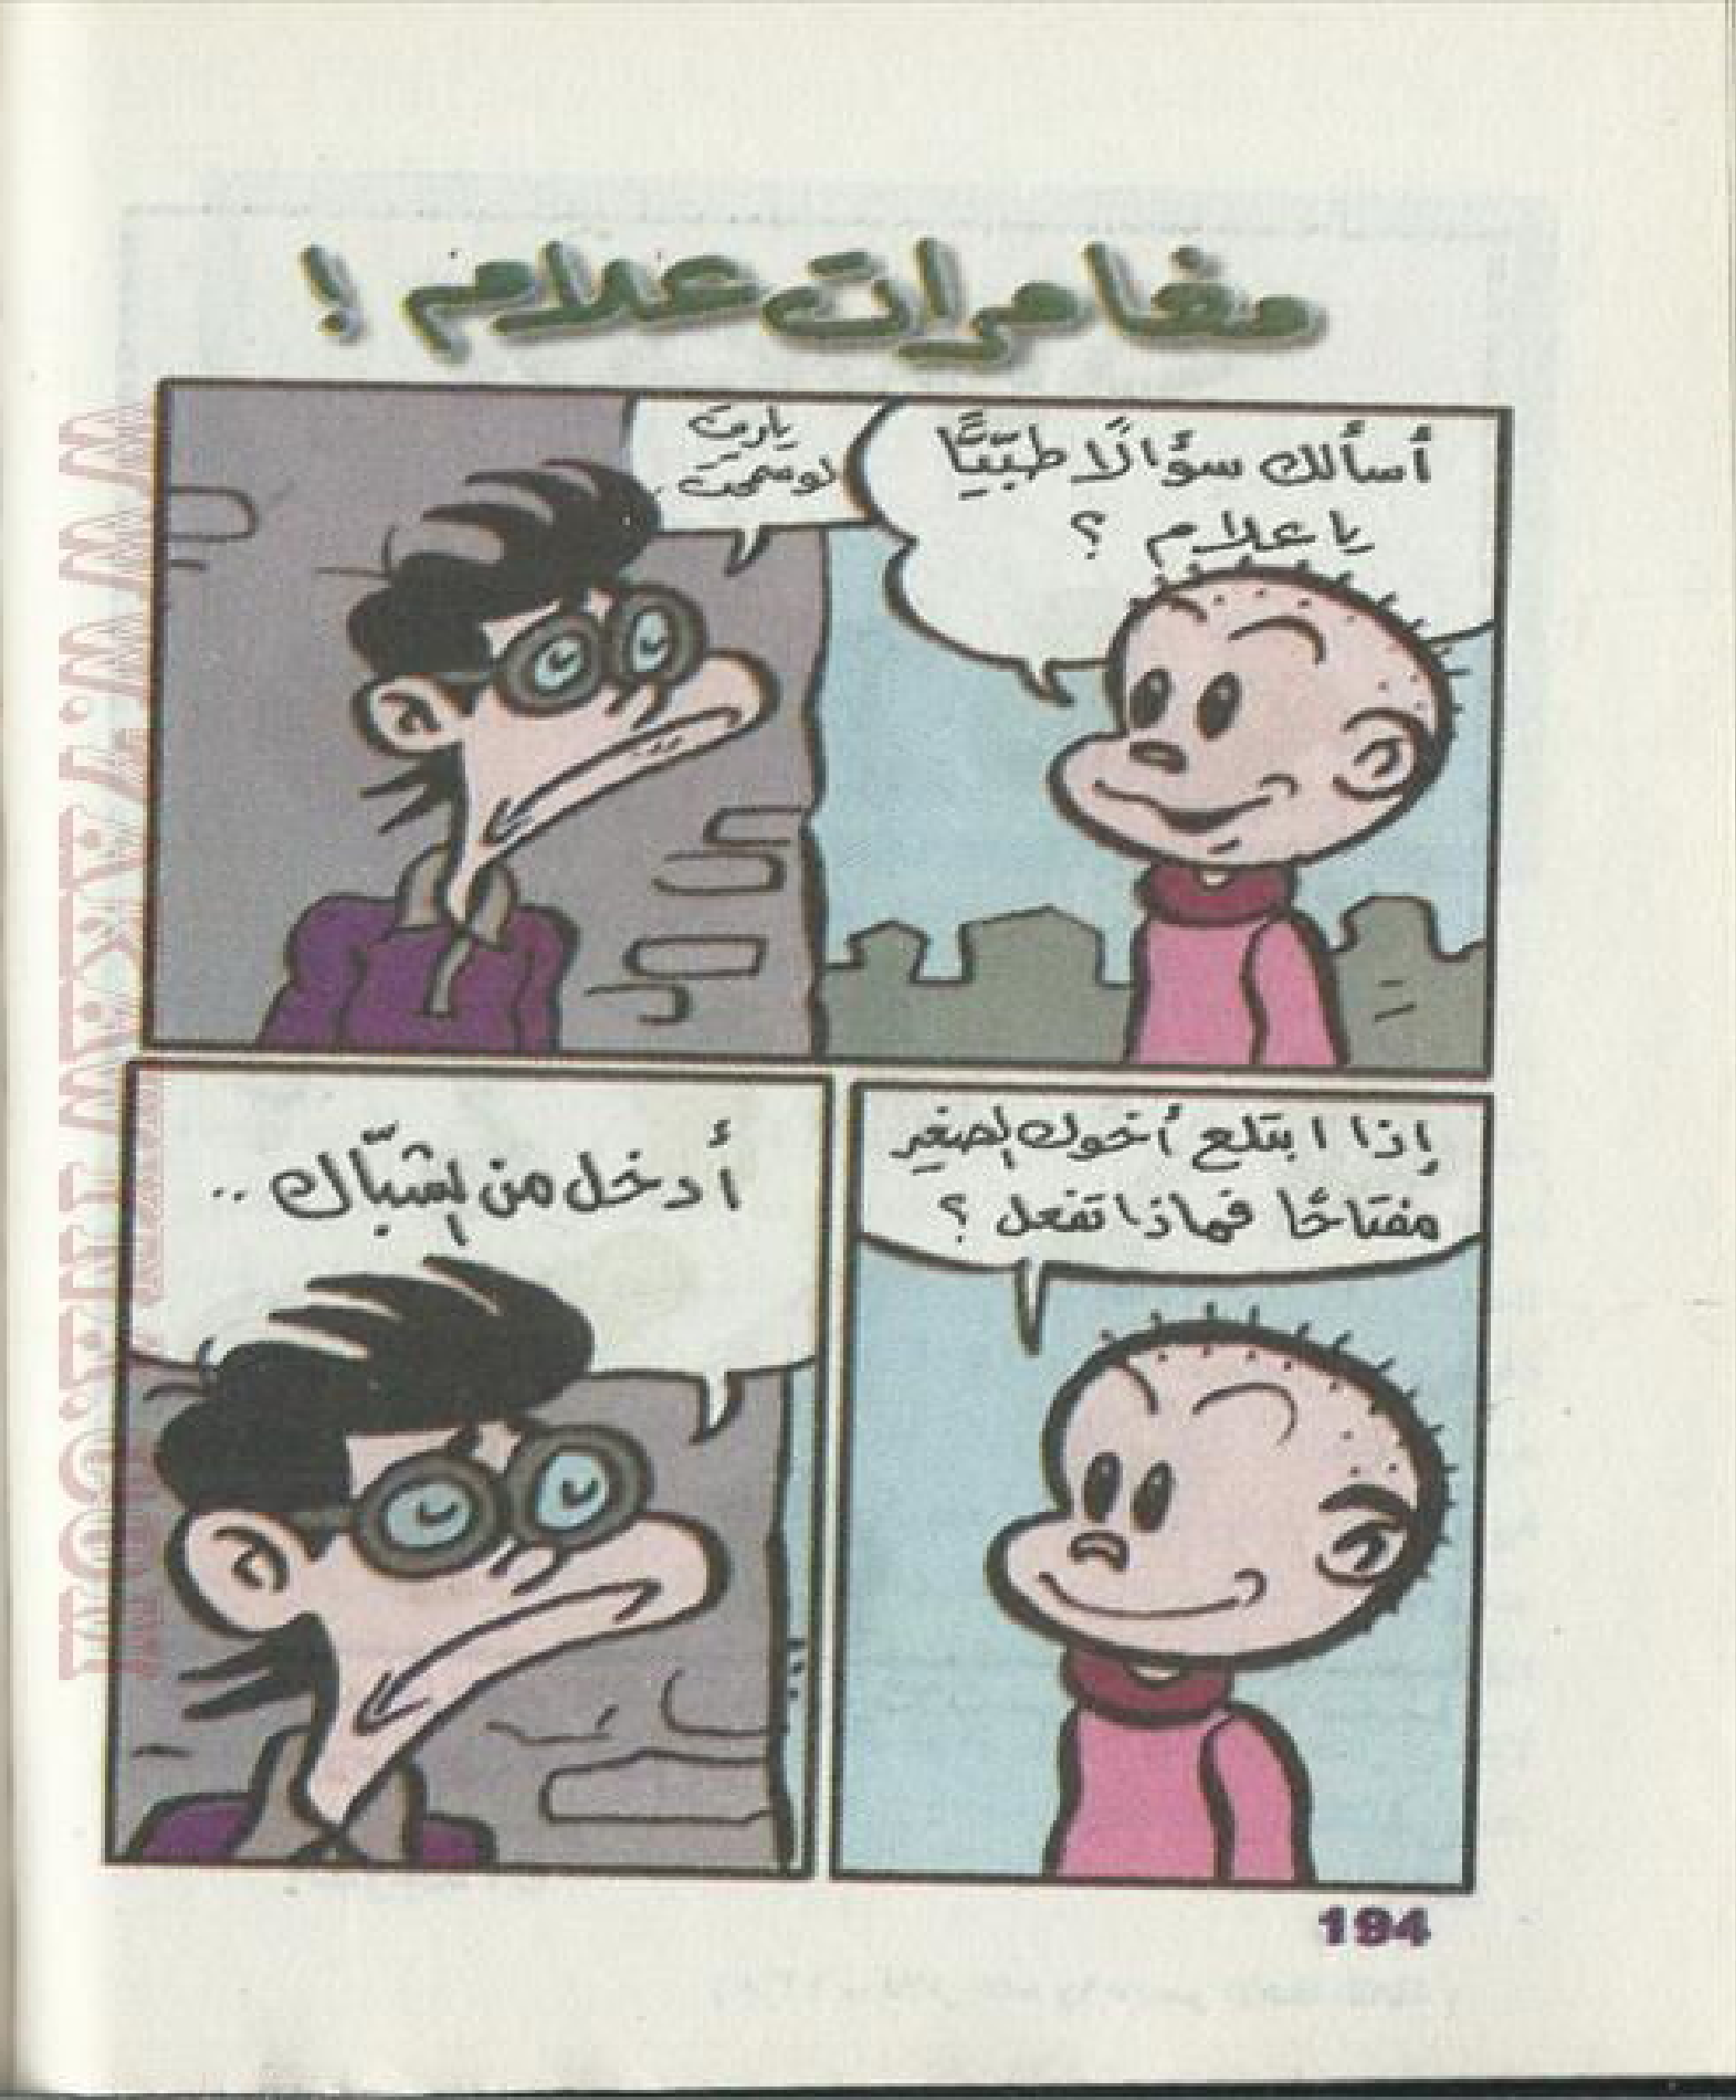 مغامرات علام !
أسألك سؤالًا طبّيًّا
يا علام ؟
ياريت
لو سمحت ..
إذا ابتلع أخوك الصغير
مفتاحًا فماذا تفعل ؟
أدخل من الشبّاك ..
194